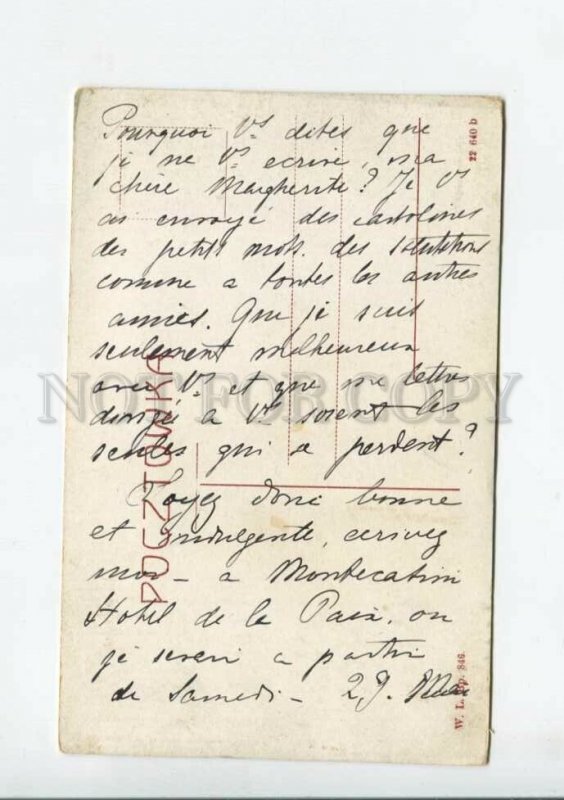 Pourquoi Vs dites que
je ne Vs ecrive, ma
chère Margherite? Je Vs
ai envoyé des cartolines
des petits mots, des salutations
comme a toutes les autres
amies. Que je suis
seulement malheureux
avec Vs et que me lettres
dirigé a Vs soient les
seules qui se perdent?
Soyez donc bonne
et indulgente, ecrivez
moi - a Montecatini
Hotel de la Paix, ou
je serai a partir
de Samedi - 29.
POCZTOWKA
22 640 b
W. L. Bp. 846.
NOT FOR COPY